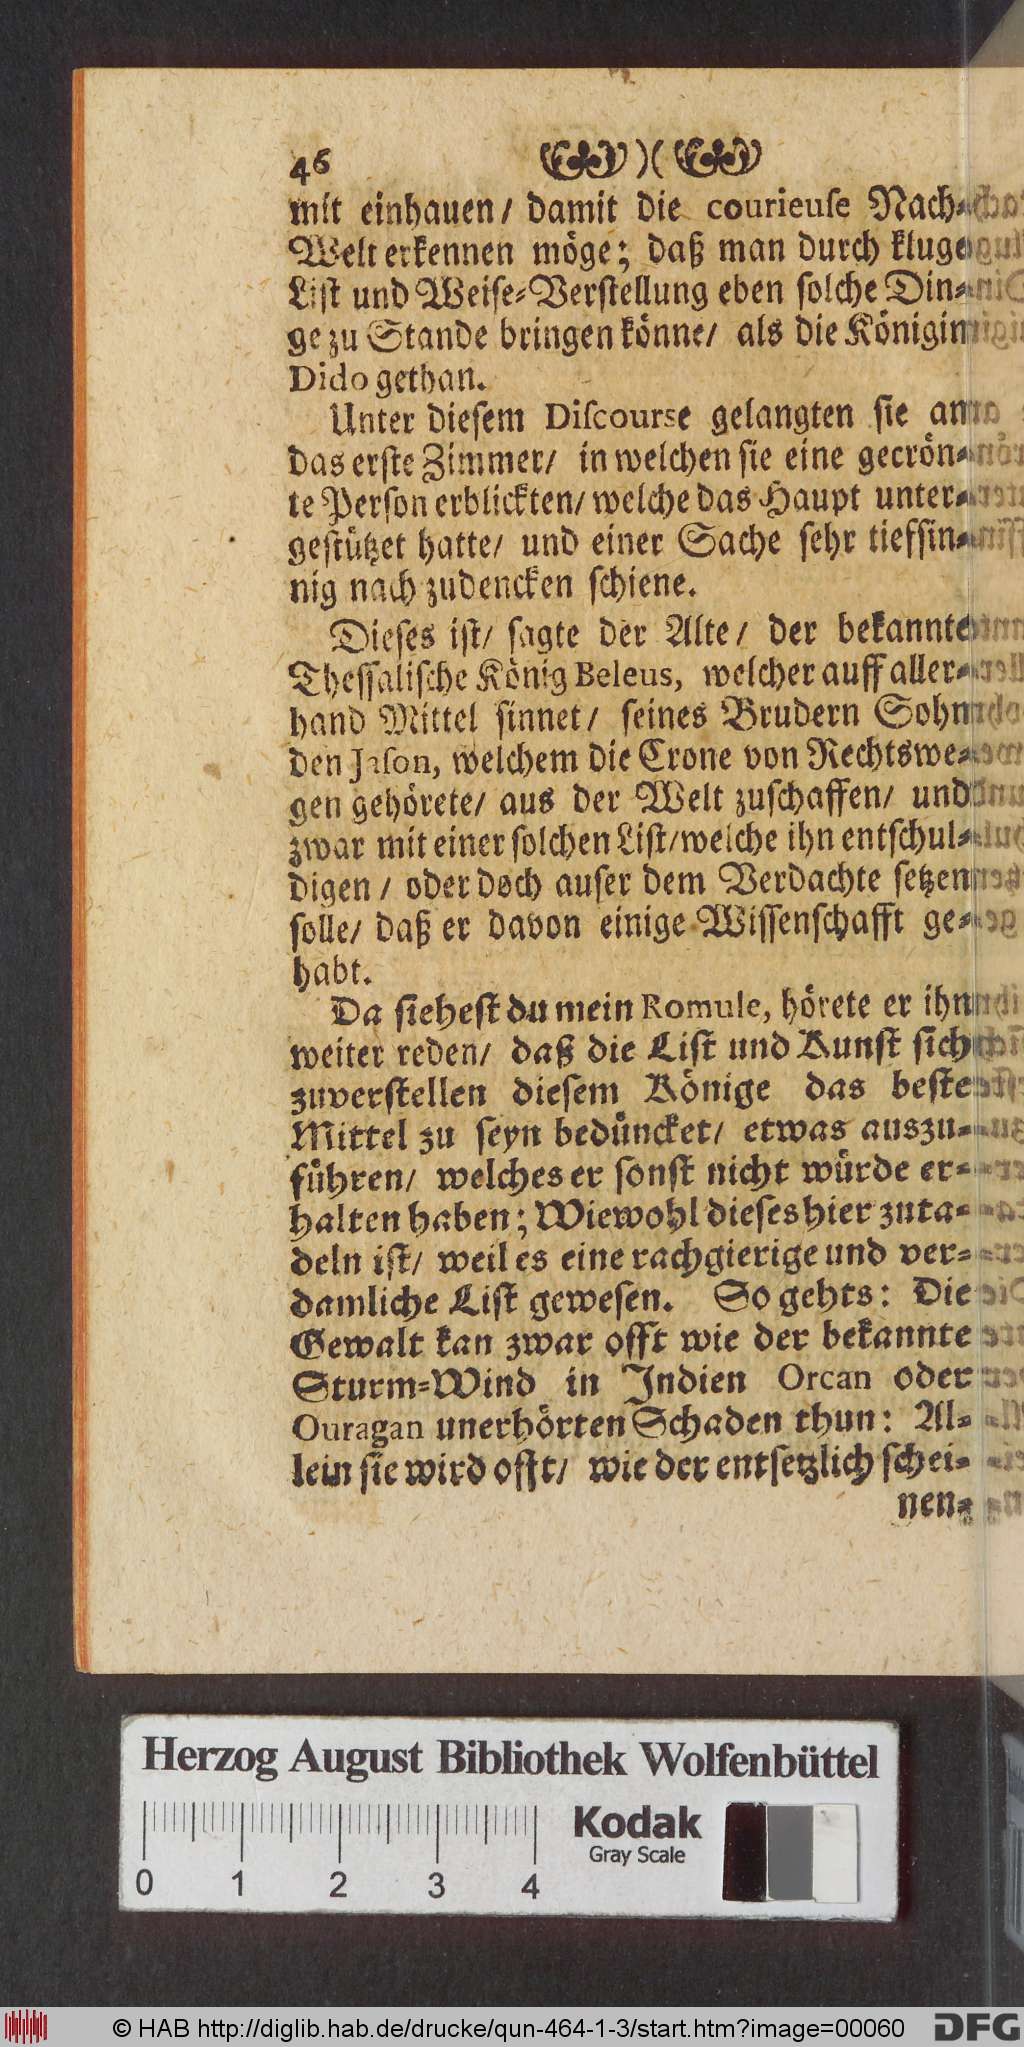 46 )(
mit einhauen/ damit die courieuſe Nach-
Welt erkennen möge; daß man durch kluge
Liſt und Weiſe-Verſtellung eben ſolche Din-
ge zu Stande bringen könne/ als die Königin
Dido gethan.
Unter dieſem Diſcourse gelangten ſie an
das erſte Zimmer/ in welchen ſie eine gecrön-
te Perſon erblickten/ welche das Haupt unter-
geſtützet hatte/ und einer Sache ſehr tiefſin-
nig nach zudencken ſchiene.
Dieſes iſt/ ſagte der Alte/ der bekannte
Theſſaliſche König Beleus, welcher auff aller-
hand Mittel ſinnet/ ſeines Brudern Sohn
den Jaſon, welchem die Crone von Rechtswe-
gen gehörete/ aus der Welt zuſchaffen/ und
zwar mit einer ſolchen Liſt/welche ihn entſchul-
digen / oder doch auſer dem Verdachte ſetzen
ſolle/ daß er davon einige Wiſſenſchafft ge-
habt.
Da ſieheſt du mein Romule, hörete er ihn
weiter reden/ daß die Liſt und Kunſt ſich
zuverſtellen dieſem Könige das beſte
Mittel zu ſeyn bedüncket/ etwas auszu-
führen/ welches er ſonſt nicht würde er-
halten haben; Wiewohl dieſes hier zuta-
deln iſt/ weil es eine rachgierige und ver-
damliche Liſt geweſen. So gehts: Die
Gewalt kan zwar offt wie der bekannte
Sturm-Wind in Indien Orcan oder
Ouragan unerhörten Schaden thun: Al-
lein ſie wird offt/ wie der entſetzlich ſchei-
nen-
Herzog August Bibliothek Wolfenbüttel
0 1 2 3 4
Kodak
Gray Scale
© HAB http://diglib.hab.de/drucke/qun-464-1-3/start.htm?image=00060
DFG